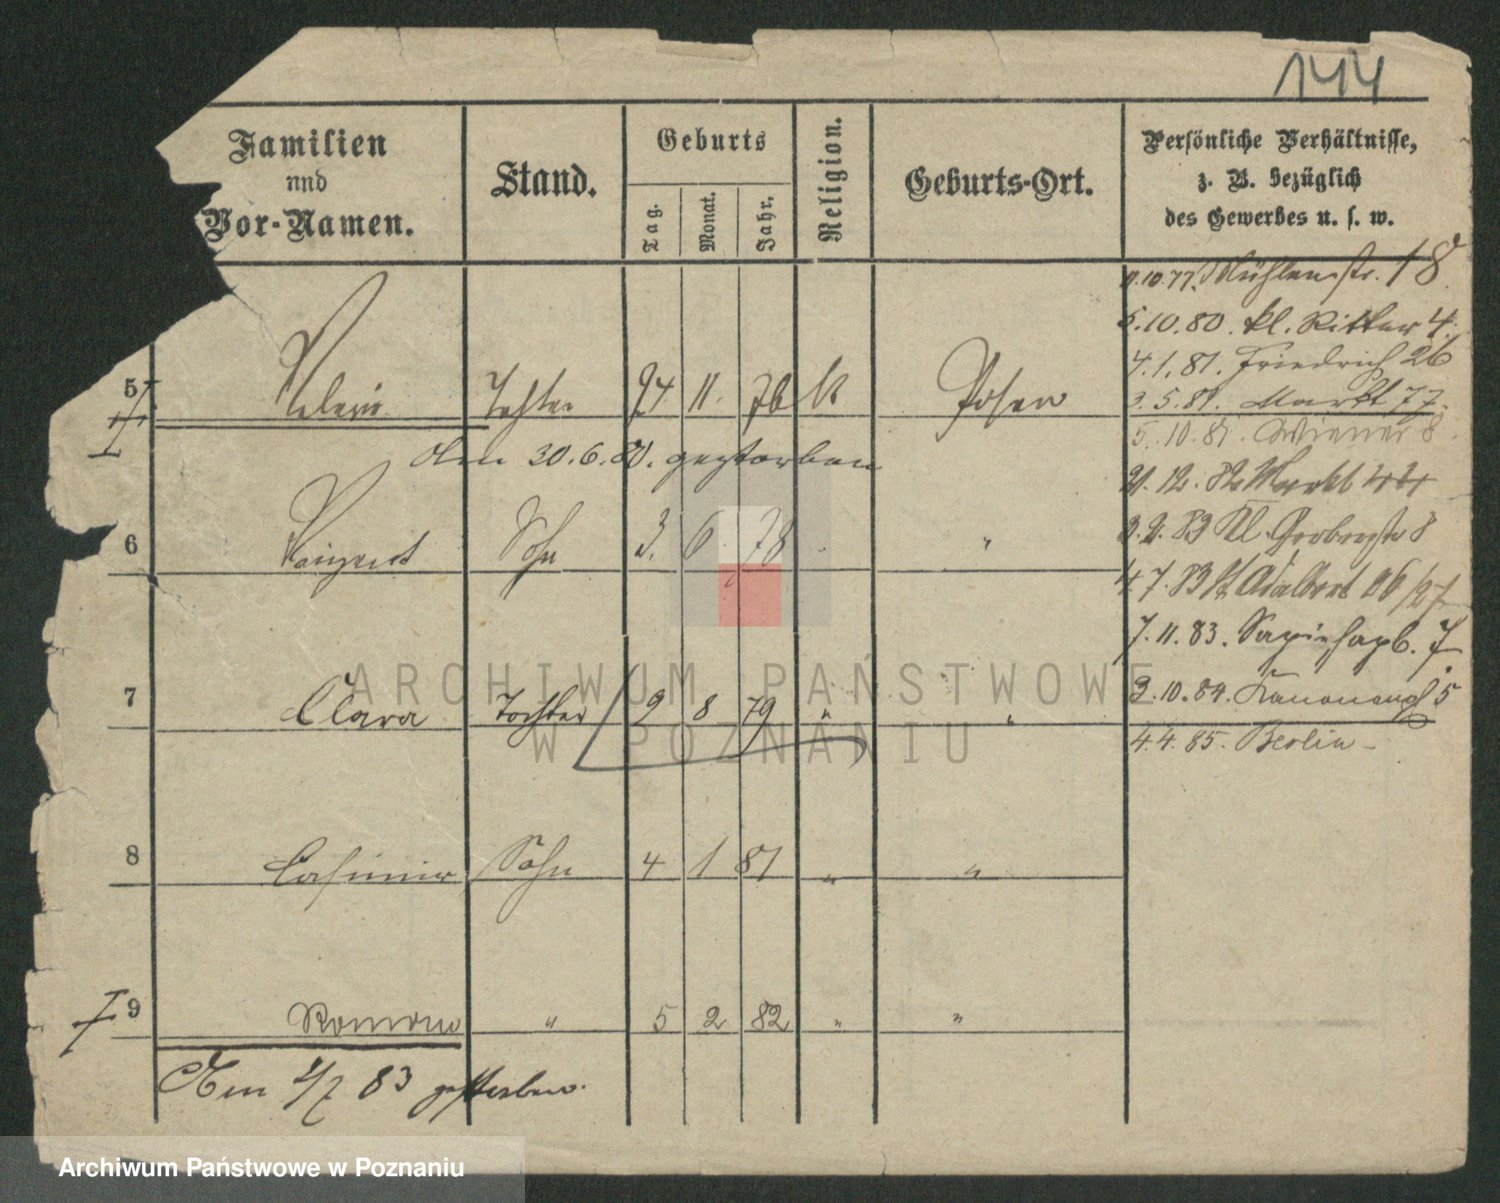 144
Familien
und
Vor-Namen.
Stand.
Geburts
Tag.
Monat.
Jahr.
Religion.
Geburts-Ort.
Persönliche Verhältnisse,
z. B. bezüglich
des Gewerbes u. s. w.
11.10.77. Mühlenstr. 18
5.10.80. kl. Ritter 4.
4.1.81. Friedrich 26
3.5.81. Markt 77.
5.10.81. Wiener 8
21.12.82 Markt 44
3.2.83 Kl. Gerberstr 8
4.7.83 St Adalbert 26/27
7.11.83. Sapiehapl. 7
3.10.84. Kanonenpl 5
4.4.85. Berlin
5 Tochter 24 11. 76 k Posen
den 30.6.80. gestorben
6 Sohn 3. 6 78 " "
7 Clara Tochter 2 8 79 " "
8 Casimir Sohn 4 1 81 " "
9 Roman " 5 2 82 " "
Den 4/7 83 gestorben.
ARCHIWUM PAŃSTWOWE
W POZNANIU
Archiwum Państwowe w Poznaniu